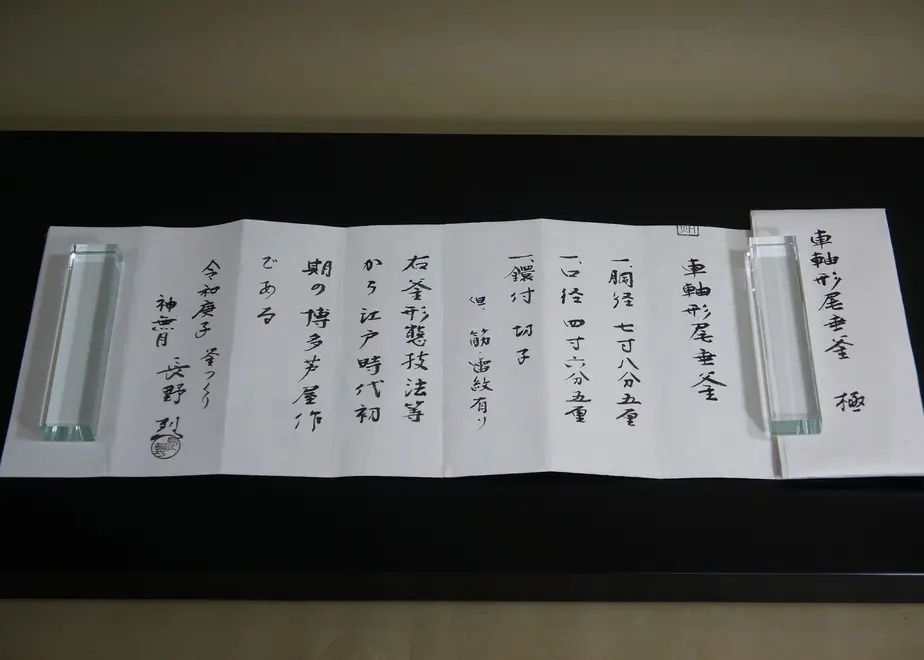 車軸形尾垂釜
極
車軸形尾垂釜
一、胴径 七寸八分五厘
一、口径 四寸六分五厘
一、鐶付 切子
但、筋・雷紋有り
右釜形態技法等
から江戸時代初
期の博多芦屋作
である
令和庚子 釜つくり
神無月 長野 烈